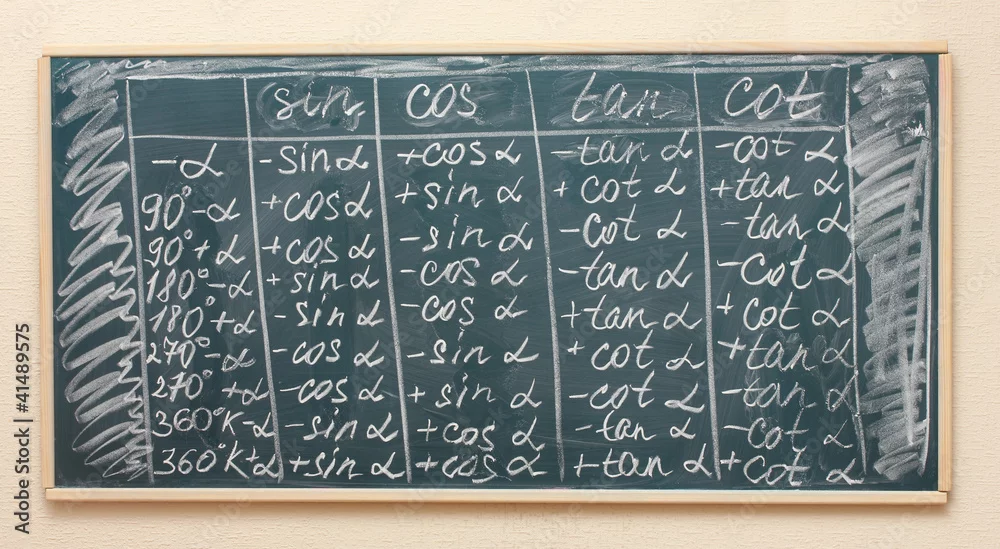 sin cos tan cot
-α -sin α +cos α -tan α -cot α
90°-α +cos α +sin α +cot α +tan α
90°+α +cos α -sin α -cot α -tan α
180°-α +sin α -cos α -tan α -cot α
180°+α -sin α -cos α +tan α +cot α
270°-α -cos α -sin α +cot α +tan α
270°+α -cos α +sin α -cot α -tan α
360°K-α -sin α +cos α -tan α -cot α
360°K+α +sin α +cos α +tan α +cot α
Adobe Stock | #41489575